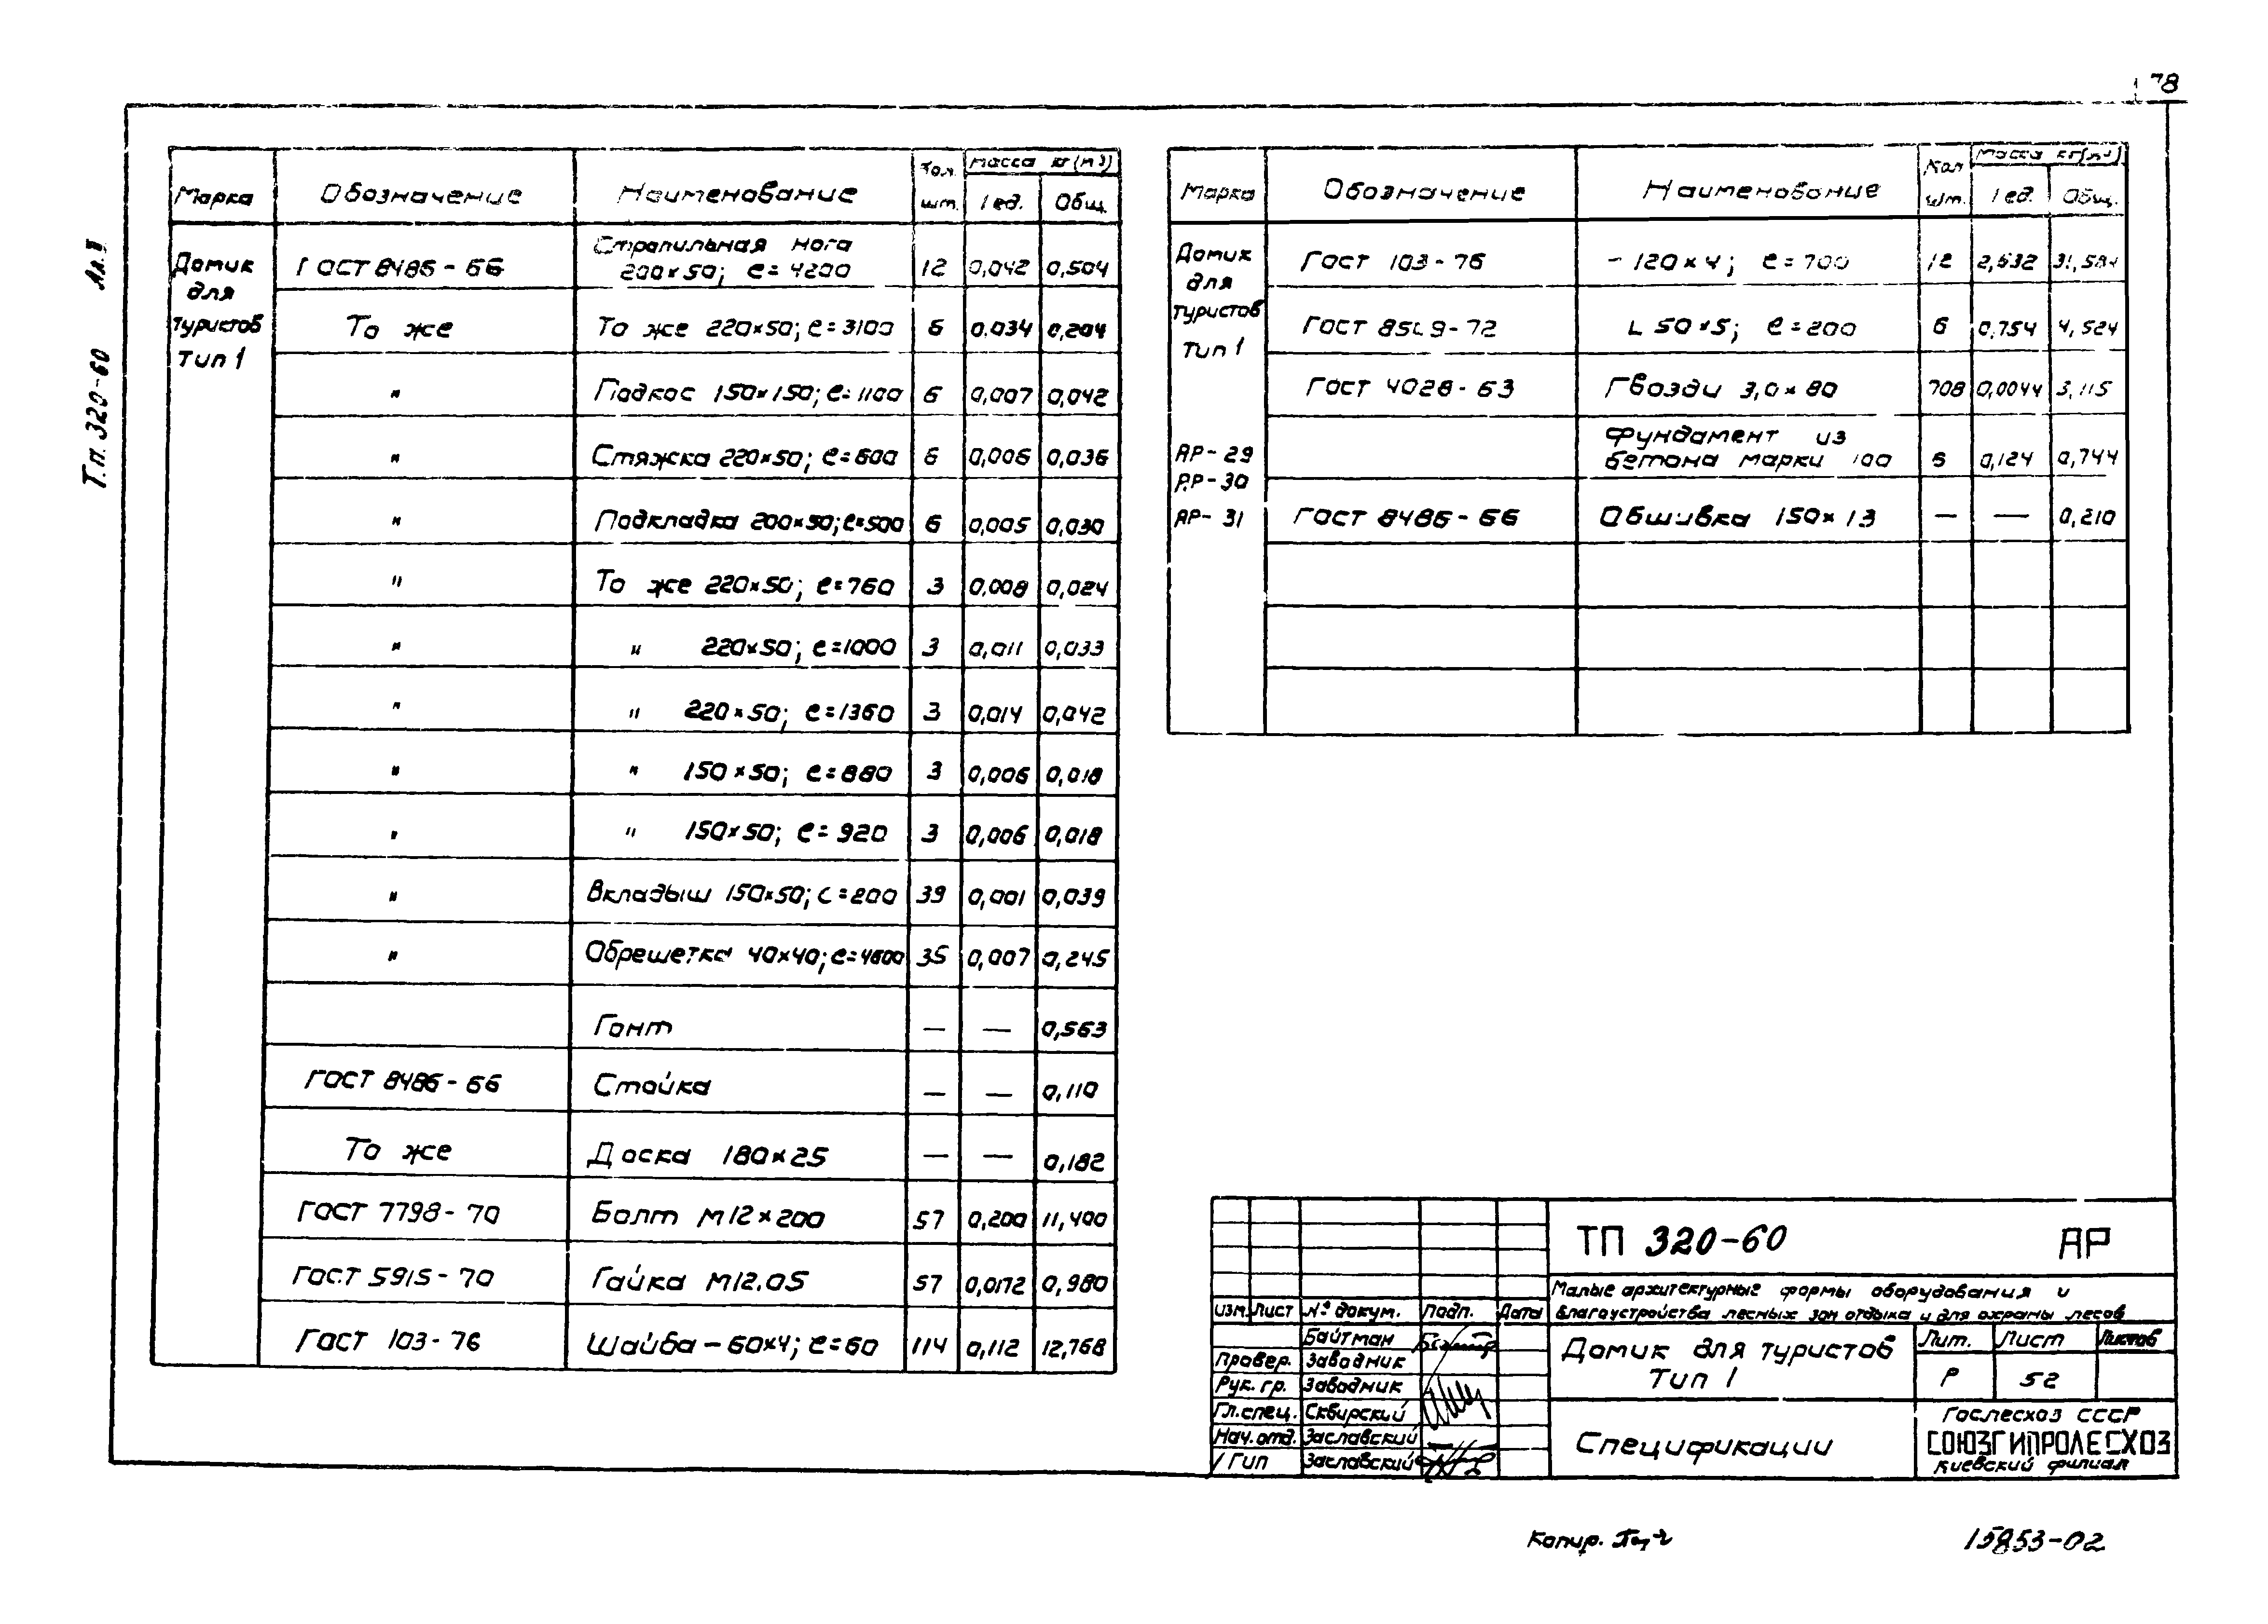 78
Т.п. 320-60 Ал. II
Марка Обозначение Наименование Кол. шт. Масса кг (м3) 1 ед. Общ.
Домик для туристов Тип 1
ГОСТ 8486-66 Стропильная нога 200×50; е=4200 12 0,042 0,504
То же То же 220×50; е=3100 6 0,034 0,204
" Подкос 150×150; е=1100 6 0,007 0,042
" Стяжка 220×50; е=600 6 0,006 0,036
" Подкладка 200×50; е=500 6 0,005 0,030
" То же 220×50; е=760 3 0,008 0,024
" " 220×50; е=1000 3 0,011 0,033
" " 220×50; е=1360 3 0,014 0,042
" " 150×50; е=880 3 0,006 0,018
" " 150×50; е=920 3 0,006 0,018
" Вкладыш 150×50; е=200 39 0,001 0,039
" Обрешетка 40×40; е=4600 35 0,007 0,245
Гонт — — 0,563
ГОСТ 8486-66 Стойка — — 0,110
То же Доска 180×25 — — 0,182
ГОСТ 7798-70 Болт М12×200 57 0,200 11,400
ГОСТ 5915-70 Гайка М12.05 57 0,0172 0,980
ГОСТ 103-76 Шайба-60×4; е=60 114 0,112 12,768
Марка Обозначение Наименование Кол шт. Масса кг(м3) 1 ед. Общ.
Домик для туристов Тип 1
ГОСТ 103-76 -120×4; е=700 12 2,632 31,584
ГОСТ 8509-72 L 50×5; е=200 6 0,754 4,524
ГОСТ 4028-63 Гвозди 3,0×80 708 0,0044 3,115
АР-29
АР-30
Фундамент из бетона марки 100 6 0,124 0,744
АР-31 ГОСТ 8486-66 Обшивка 150×13 — — 0,210
ТП 320-60 АР
Малые архитектурные формы оборудования и
благоустройства лесных зон отдыха и для охраны лесов
Изм. Лист № докум. Подп. Дата
Байтман
Провер. Заводник
Рук. гр. Заводник
Гл. спец. Сквирский
Нач. отд. Заславский
ГИП Заславский
Домик для туристов
Тип 1
Лит. Лист Листов
Р 52
Спецификации
Гослесхоз СССР
СОЮЗГИПРОЛЕСХОЗ
Киевский филиал
Копир.
15853-02